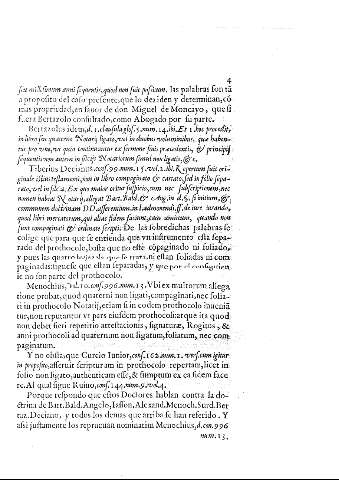 4
sit vel sit anni sequentis, quod non sit positum. las palabras son tā
a proposito del caso presente, que lo deciden y determinan, có
mas propriedad, en fauor de don Miguel de Moncayo, que si
fuera Bertazolo consultado, como Abogado por su parte.
Bertazolus idem, d. 1. clausula glos. 5. num. 14. ibi. Et 1. hoc procedit,
in libro seu quaterno Notarij ligato, vel in duobus voluminibus, quæ haben-
tur pro vno, vt quia continuantur ex sermone suis præcedentis, & principij
sequentis non autem in sceda Notariorum simul non ligatis, &c.
Tiberius Decianus, cons. 99. num. 15. vol. 2. ibi. Repertum fuit ori-
ginale illius testamenti, non in libro compaginato & cartato, sed in folio sepa-
rato, vel in filcia. Ex quo maior oritur suspicio, cum nec subscriptionem, nec
nomen habeat Notarij, allegat Bart. Bald. & Ang. in d. §. si initium, &
communem doctrinam DD. asserentium, in l. admonendi, ff. de iure iurando,
quod libri instratorum, qui alias fidem faciunt, eam amittunt, quando non
sunt compaginati & ordinate scripti. De las sobredichas palabras se
colige que para que se entienda que vn instrumento està sepa-
rado del prothocolo, basta que no estè copaginado ni foliado,
y pues las quatro hojas de que se trata, ni estan foliadas ni com
paginadas: siguese que estan separadas, y que por el consiguien
te no son parte del prothocolo.
Menochius, vol. 10. cons. 996. num. 13. Vbi ex multorum allega
tione probat, quod quaterni non ligati, compaginati, nec folia-
ti in prothocolo Notarij, etiam si in eodem prothocolo inuenian
tur, non reputantur vt pars eiusdem prothocoli atque ita quod
non debet fieri repetitio attestationis, signaturæ, Rogitus, &
anni prothocoli ad quaternum non ligatum, foliatum, nec com
paginatum.
Y no obsta, que Curcio Iunior, cons. 162. num. 1. vers. cum igitur
in proposito, asseruit scripturam in prothocolo repertam, licet in
folio non ligato, authenticam esse, & sumptum ex ea fidem face
re. Al qual sigue Ruino, cons. 144. num. 9. vol. 4.
Porque respondo que estos Doctores hablan contra la do-
ctrina de Bart. Bald. Angelo, Iasson, Alexand. Menoch. Surd. Ber
taz. Deciano, y todos los demas que arriba se han referido. Y
assi justamente los reprueuan nominatim Menochius, d. cons. 996
num. 13.